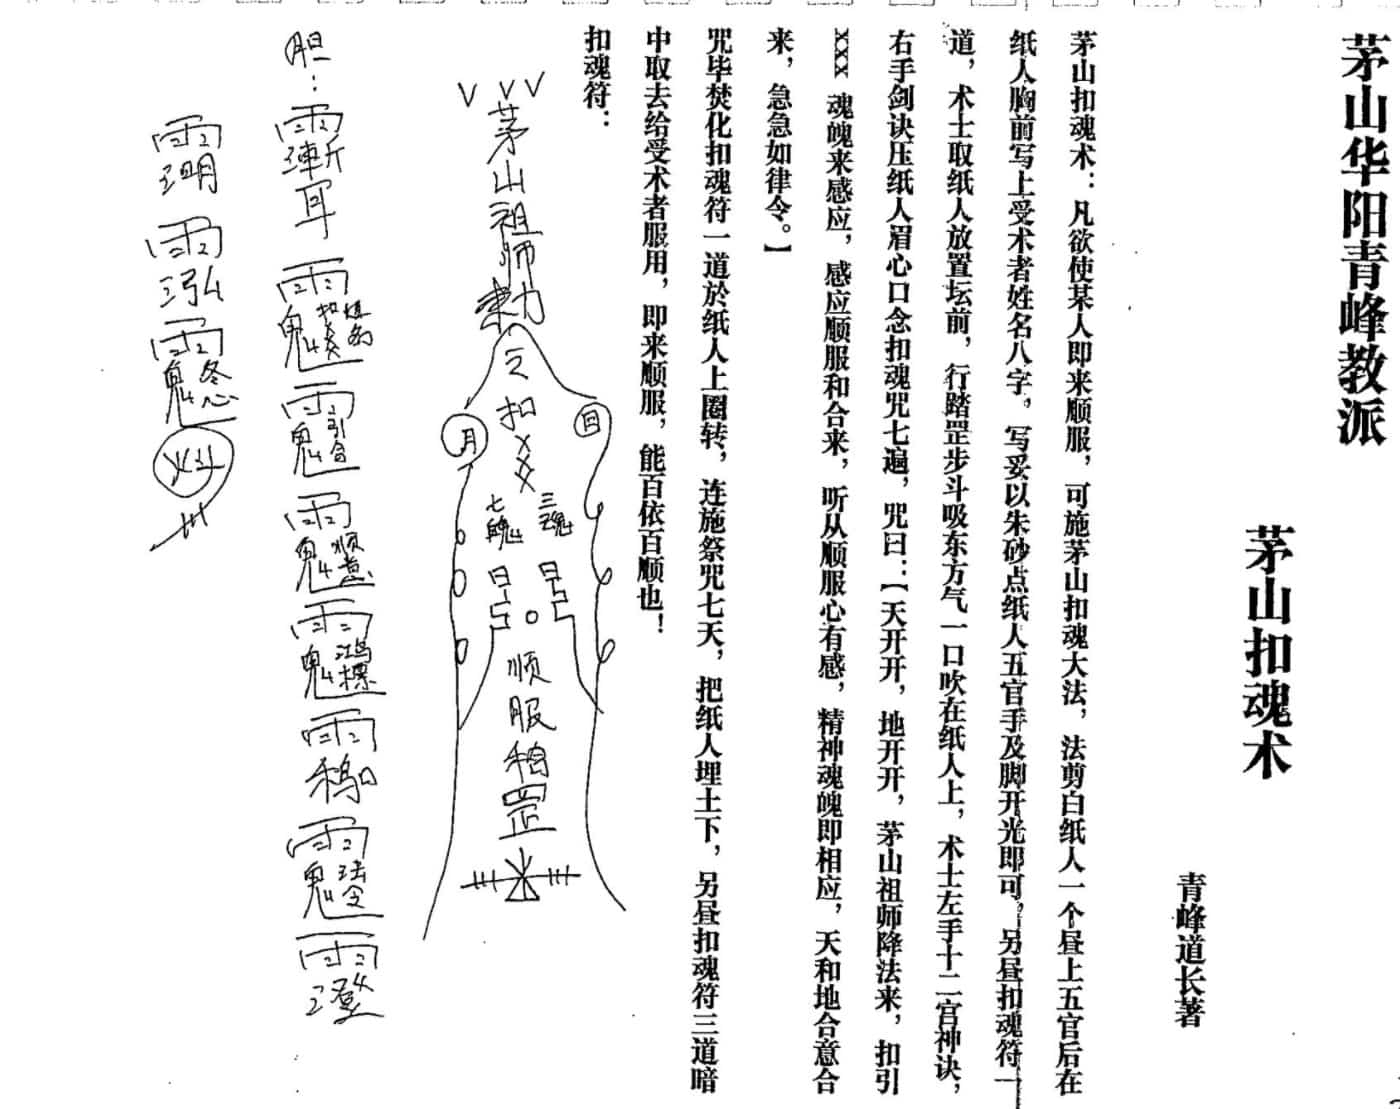 茅山华阳青峰教派
茅山扣魂术
青峰道长著
茅山扣魂术：凡欲使某人即来顺服，可施茅山扣魂大法，法剪白纸人一个昼上五官后在
纸人胸前写上受术者姓名八字。写妥以朱砂点纸人五官手及脚开光即可，另昼扣魂符一
道，术士取纸人放置坛前，行踏罡步斗吸东方气一口吹在纸人上，术士左手十二宫神诀，
右手剑诀压纸人眉心口念扣魂咒七遍，咒曰：【天开开，地开开，茅山祖师降法来，扣引
XXX 魂魄来感应，感应顺服和合来，听从顺服心有感，精神魂魄即相应，天和地合意合
来，急急如律令。】
咒毕焚化扣魂符一道於纸人上圈转，连施祭咒七天，把纸人埋土下，另昼扣魂符三道暗
中取去给受术者服用，即来顺服，能百依百顺也！
扣魂符：
茅山祖师勅
扣XXX
日
月
三魂
七魄
顺服
罡
胆：